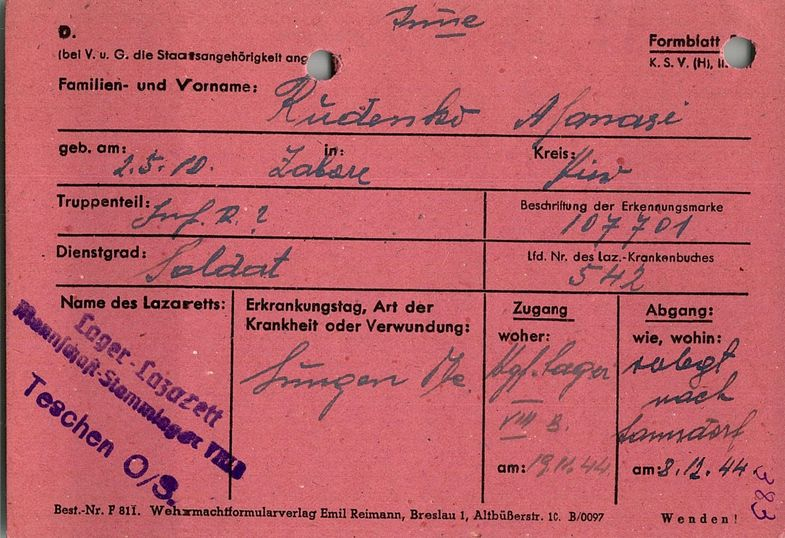 D.
(bei V. u. G. die Staatsangehörigkeit ang
Formblatt
K. S. V. (H), II.
Familien- und Vorname: Rudenko Afanasi
geb. am: 2.5.10. in: Kreis: Kiew
Truppenteil: Inf. R. ?
Beschriftung der Erkennungsmarke
107701
Dienstgrad: Soldat
Lfd. Nr. des Laz.-Krankenbuches
542
Name des Lazaretts:
Lager-Lazarett
Mannschaft-Stammlager VIII B
Teschen O/S.
Erkrankungstag, Art der
Krankheit oder Verwundung:
Lungen
Zugang
woher:
Kgf. Lager
VIII B.
am: 19.11.44
Abgang:
wie, wohin:
verlegt
nach
Lamsdorf
am: 8.12.44
383
Best.-Nr. F 81I. Wehrmachtformularverlag Emil Reimann, Breslau 1, Altbüßerstr. 10. B/0097
Wenden!